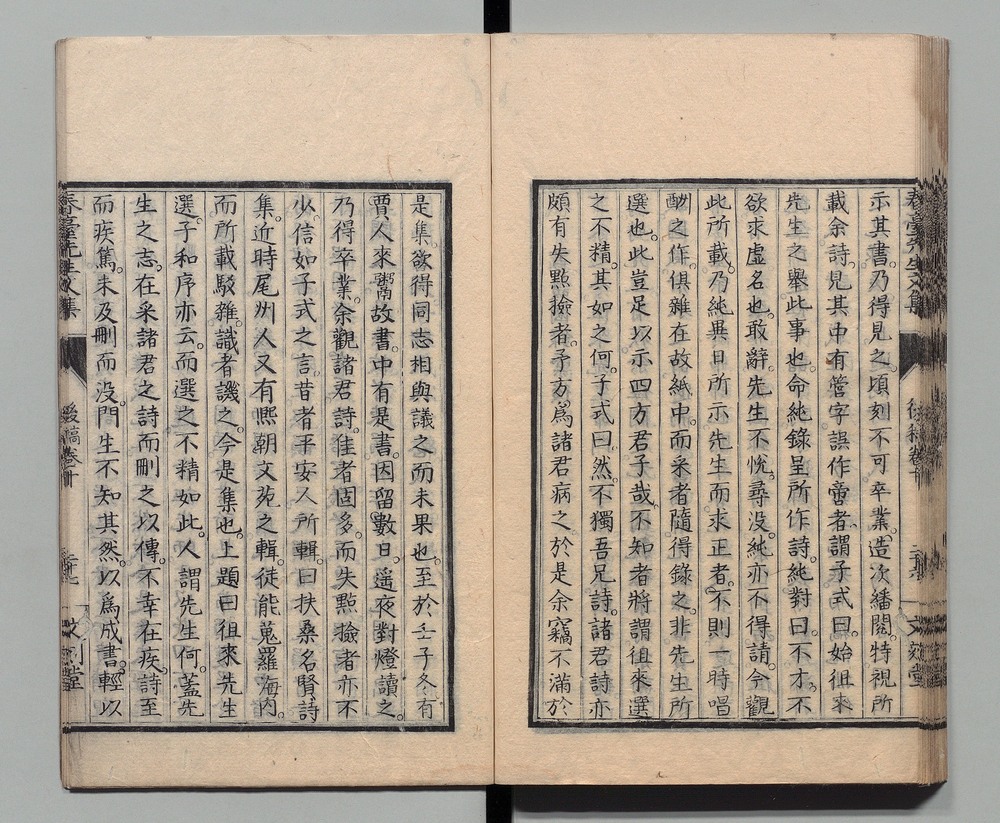 春臺先生文集
示其書。乃得見之。頃刻不可卒業。造次繙閱。特視所
載余詩。見其中有營字誤作嘗者。謂子式曰。始徂來
先生之舉此事也。命純錄呈所作詩。純對曰。不才。不
欲求虛名也。敢辭。先生不悅。尋没。純亦不得請。今觀
此所載。乃純異日所示先生而求正者。不則一時唱
酬之作。俱雜在故紙中。而采者隨得錄之。非先生所
選也。此豈足以示四方君子哉。不知者將謂徂來選
之不精。其如之何。子式曰。然。不獨吾兄詩。諸君詩亦
頗有失點撿者。予方爲諸君病之。於是余竊不滿於
是集。欲得同志相與議之而未果也。至於壬子冬。有
賈人來鬻故書。中有是書。因留數日。遥夜對燈讀之。
乃得卒業。余觀諸君詩。佳者固多。而失點撿者亦不
少。信如子式之言。昔者平安人所輯。曰扶桑名賢詩
集。近時尾州人又有熙朝文苑之輯。徒能蒐羅海内。
而所載駁雜。識者譏之。今是集也。上題曰徂來先生
選。子和序亦云。而選之不精如此。人謂先生何。蓋先
生之志。在采諸君之詩而刪之以傳。不幸在疾。詩至
而疾篤。未及刪而没。門生不知其然。以爲成書。輕以
春臺先生文集
後稿卷十